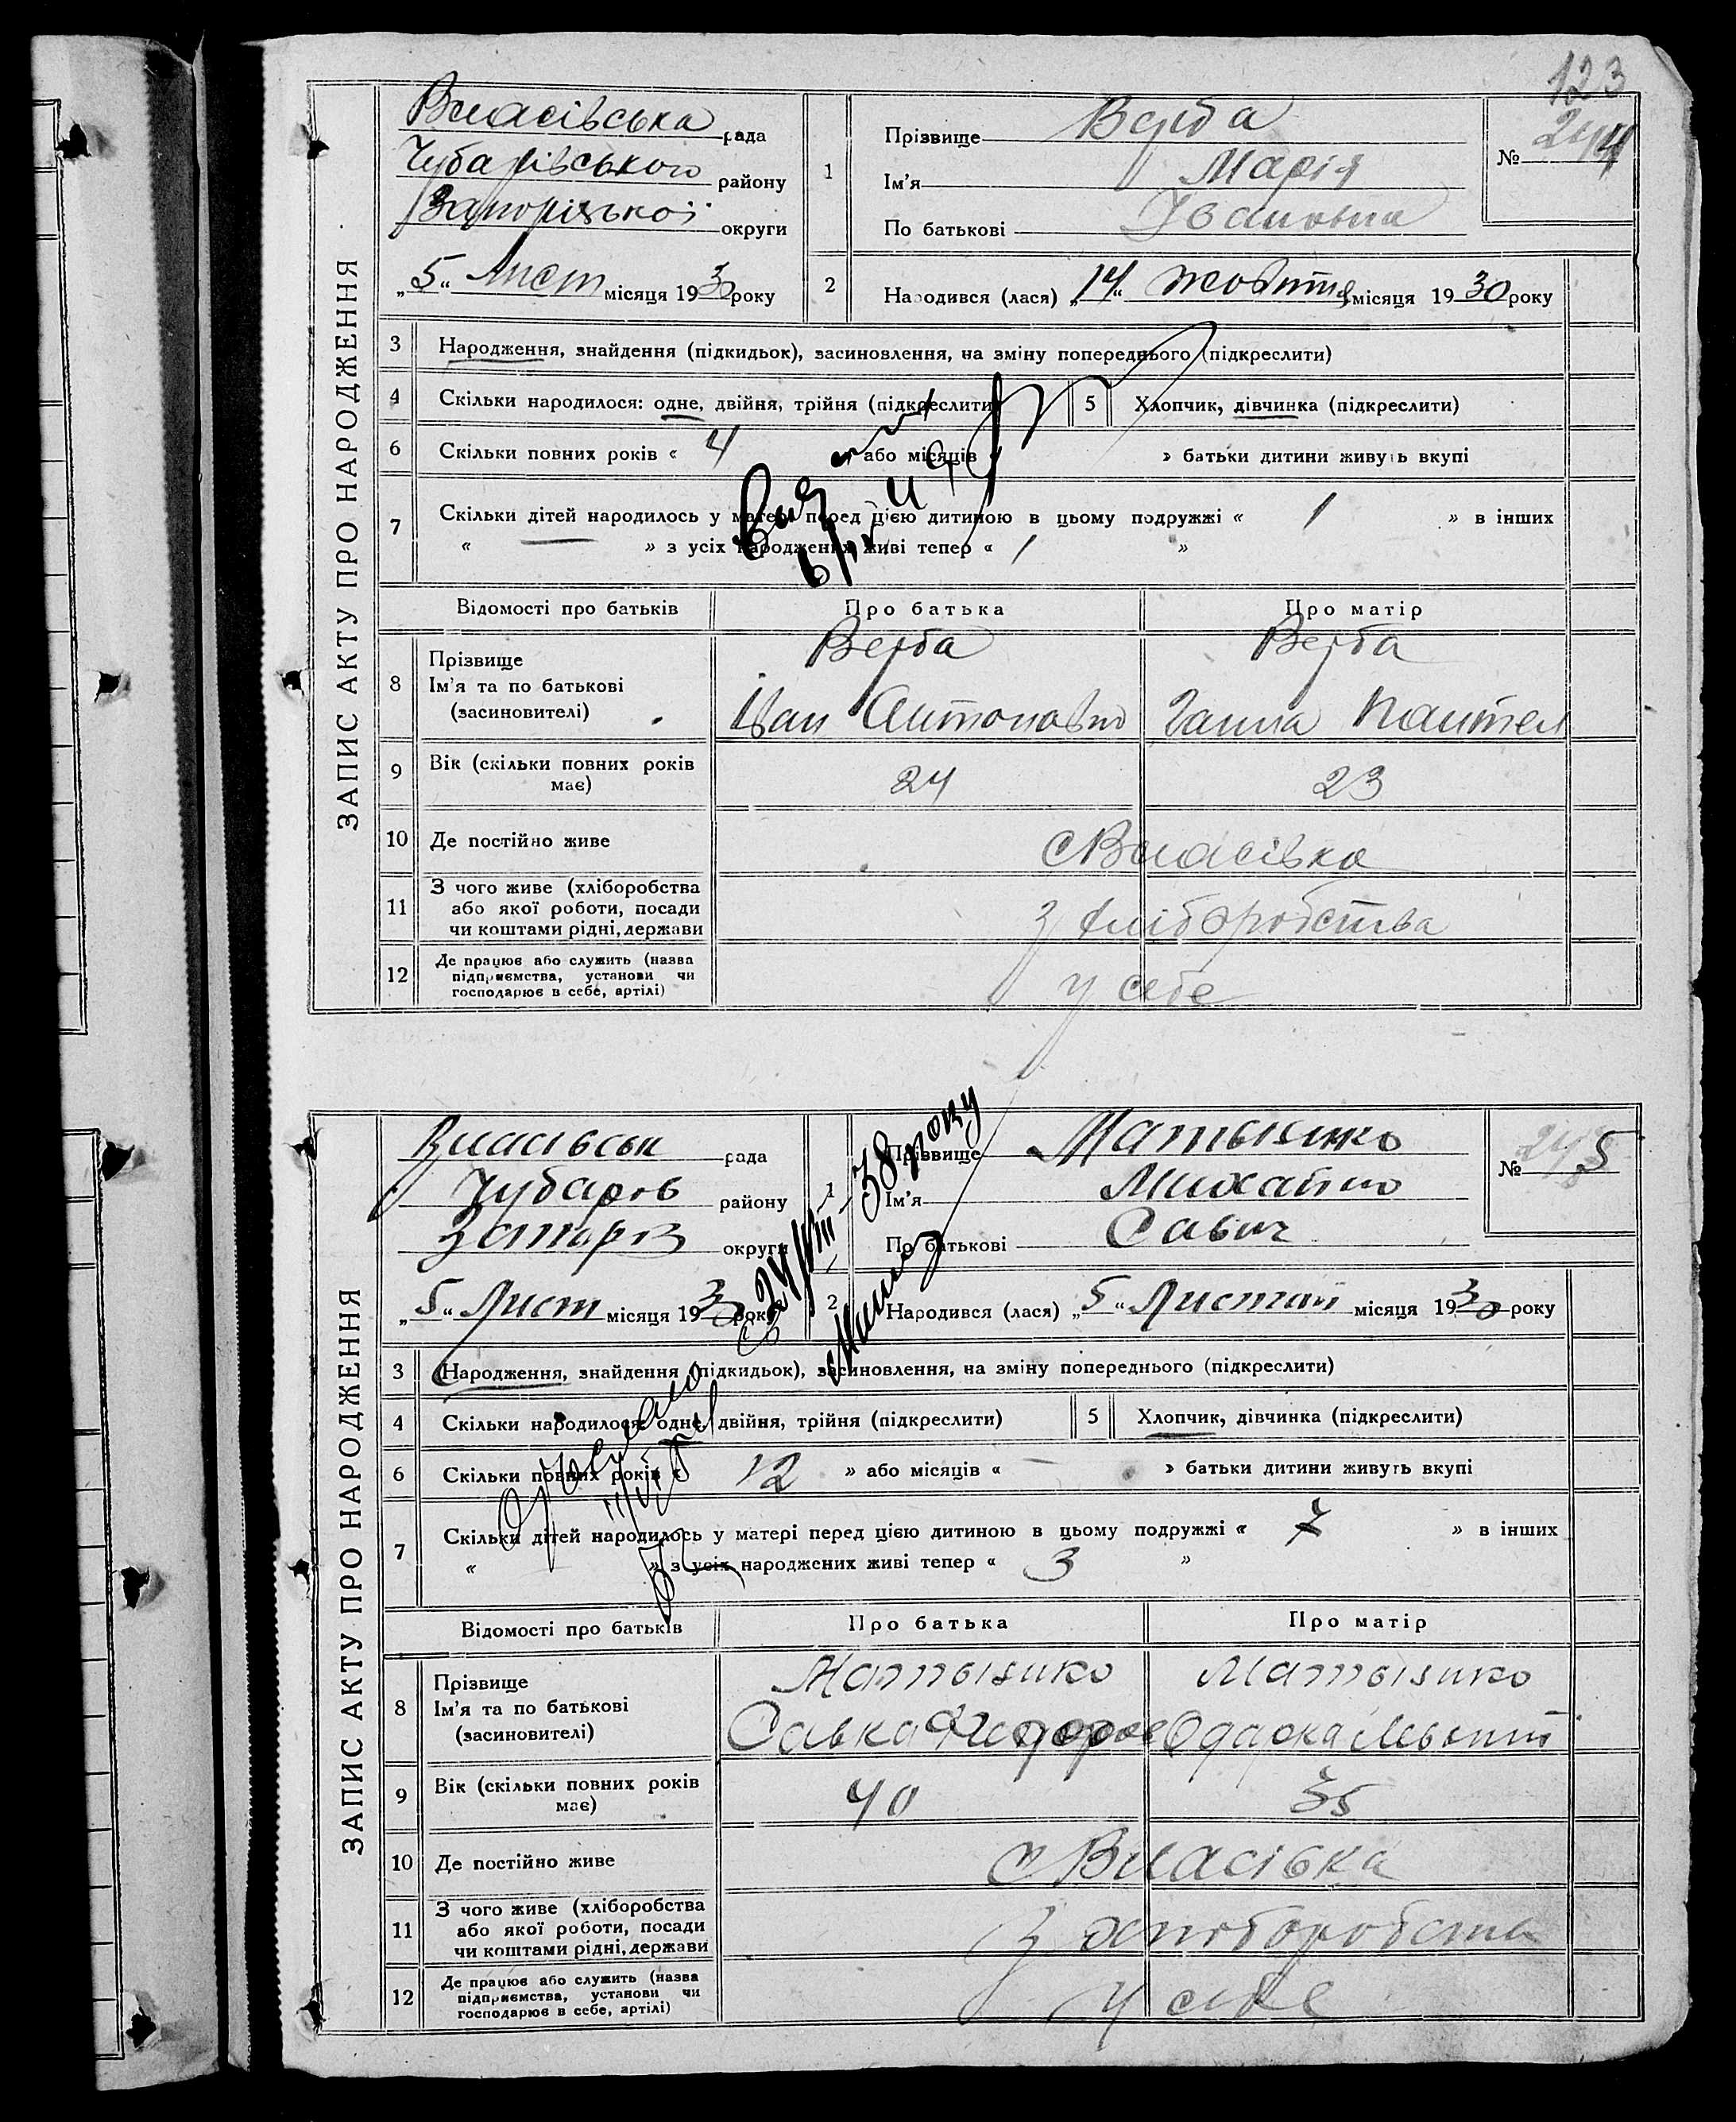 123
ЗАПИС АКТУ ПРО НАРОДЖЕННЯ
Власівська рада
Чубарівського району
Запорізької округи
„5“ Лист місяця 1930 року
1
Прізвище Верба
Ім'я Марія
По батькові Івановна
№ 4
2 Народився (лася) „14“ жовтня місяця 1930 року
3 Народження, знайдення (підкидьок), засиновлення, на зміну попереднього (підкреслити)
4 Скільки народилося: одне, двійня, трійня (підкреслити) 5 Хлопчик, дівчинка (підкреслити)
6 Скільки повних років « 4 » або місяців « » батьки дитини живуть вкупі
7 Скільки дітей народилось у матері перед цією дитиною в цьому подружжі « 1 » в інших
« » з усіх народжених живі тепер « 1 »
Відомості про батьків Про батька Про матір
8 Прізвище Верба Верба
Ім'я та по батькові
(засновителі) Іван Антонович Ганна Пантел
9 Вік (скільки повних років має) 24 23
10 Де постійно живе с Власівка
11 З чого живе (хліборобства
або якої роботи, посади
чи коштами рідні, держави з хліборобства
12 Де працює або служить (назва
підприємства, установи чи
господарює в себе, артілі) у себе
ЗАПИС АКТУ ПРО НАРОДЖЕННЯ
Власівськ рада
Чубаров району
Запоріз округи
„5“ Лист місяця 1930 року
24/VIII 38 року
1
Прізвище
Ім'я Михайло
По батькові Савич
№ 5
2 Народився (лася) „5“ Листпад місяця 1930 року
3 Народження, знайдення (підкидьок), засиновлення, на зміну попереднього (підкреслити)
4 Скільки народилося: одне, двійня, трійня (підкреслити) 5 Хлопчик, дівчинка (підкреслити)
6 Скільки повних років « 12 » або місяців « — » батьки дитини живуть вкупі
7 Скільки дітей народилось у матері перед цією дитиною в цьому подружжі « 7 » в інших
« » з усіх народжених живі тепер « 3 »
Відомості про батьків Про батька Про матір
8 Прізвище
Ім'я та по батькові
(засиновителі) Савка Федоров Одарка
9 Вік (скільки повних років має) 40 35
10 Де постійно живе с Власівка
11 З чого живе (хліборобства
або якої роботи, посади
чи коштами рідні, держави з хліборобств
12 Де працює або служить (назва
підприємства, установи чи
господарює в себе, артілі) у себе